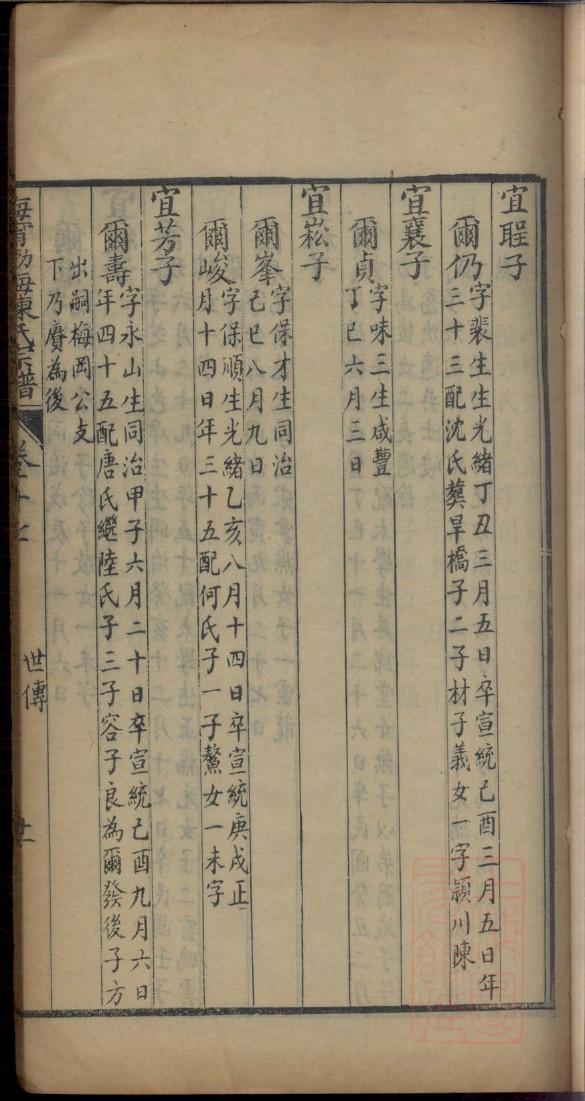 宜聖子
爾仍
字裴生生光緒丁丑三月五日卒宣統己酉三月五日年
三十三配沈氏葬旱橋子二子材子義女一字潁川陳
宜襄子
爾貞
字味三生咸豐
丁巳六月三日
宜崧子
爾峯
字保才生同治
己巳八月九日
爾峻
字保順生光緒乙亥八月十四日卒宣統庚戌正
月十四日年三十五配何氏子一子鰲女一未字
宜芳子
爾壽
字永山生同治甲子六月二十日卒宣統己酉九月六日
年四十五配唐氏繼陸氏子三子容子良為爾發後子方
出嗣梅岡公支
下乃賡為後
海甯渤海陳氏宗譜
卷十七
世傳
廿一